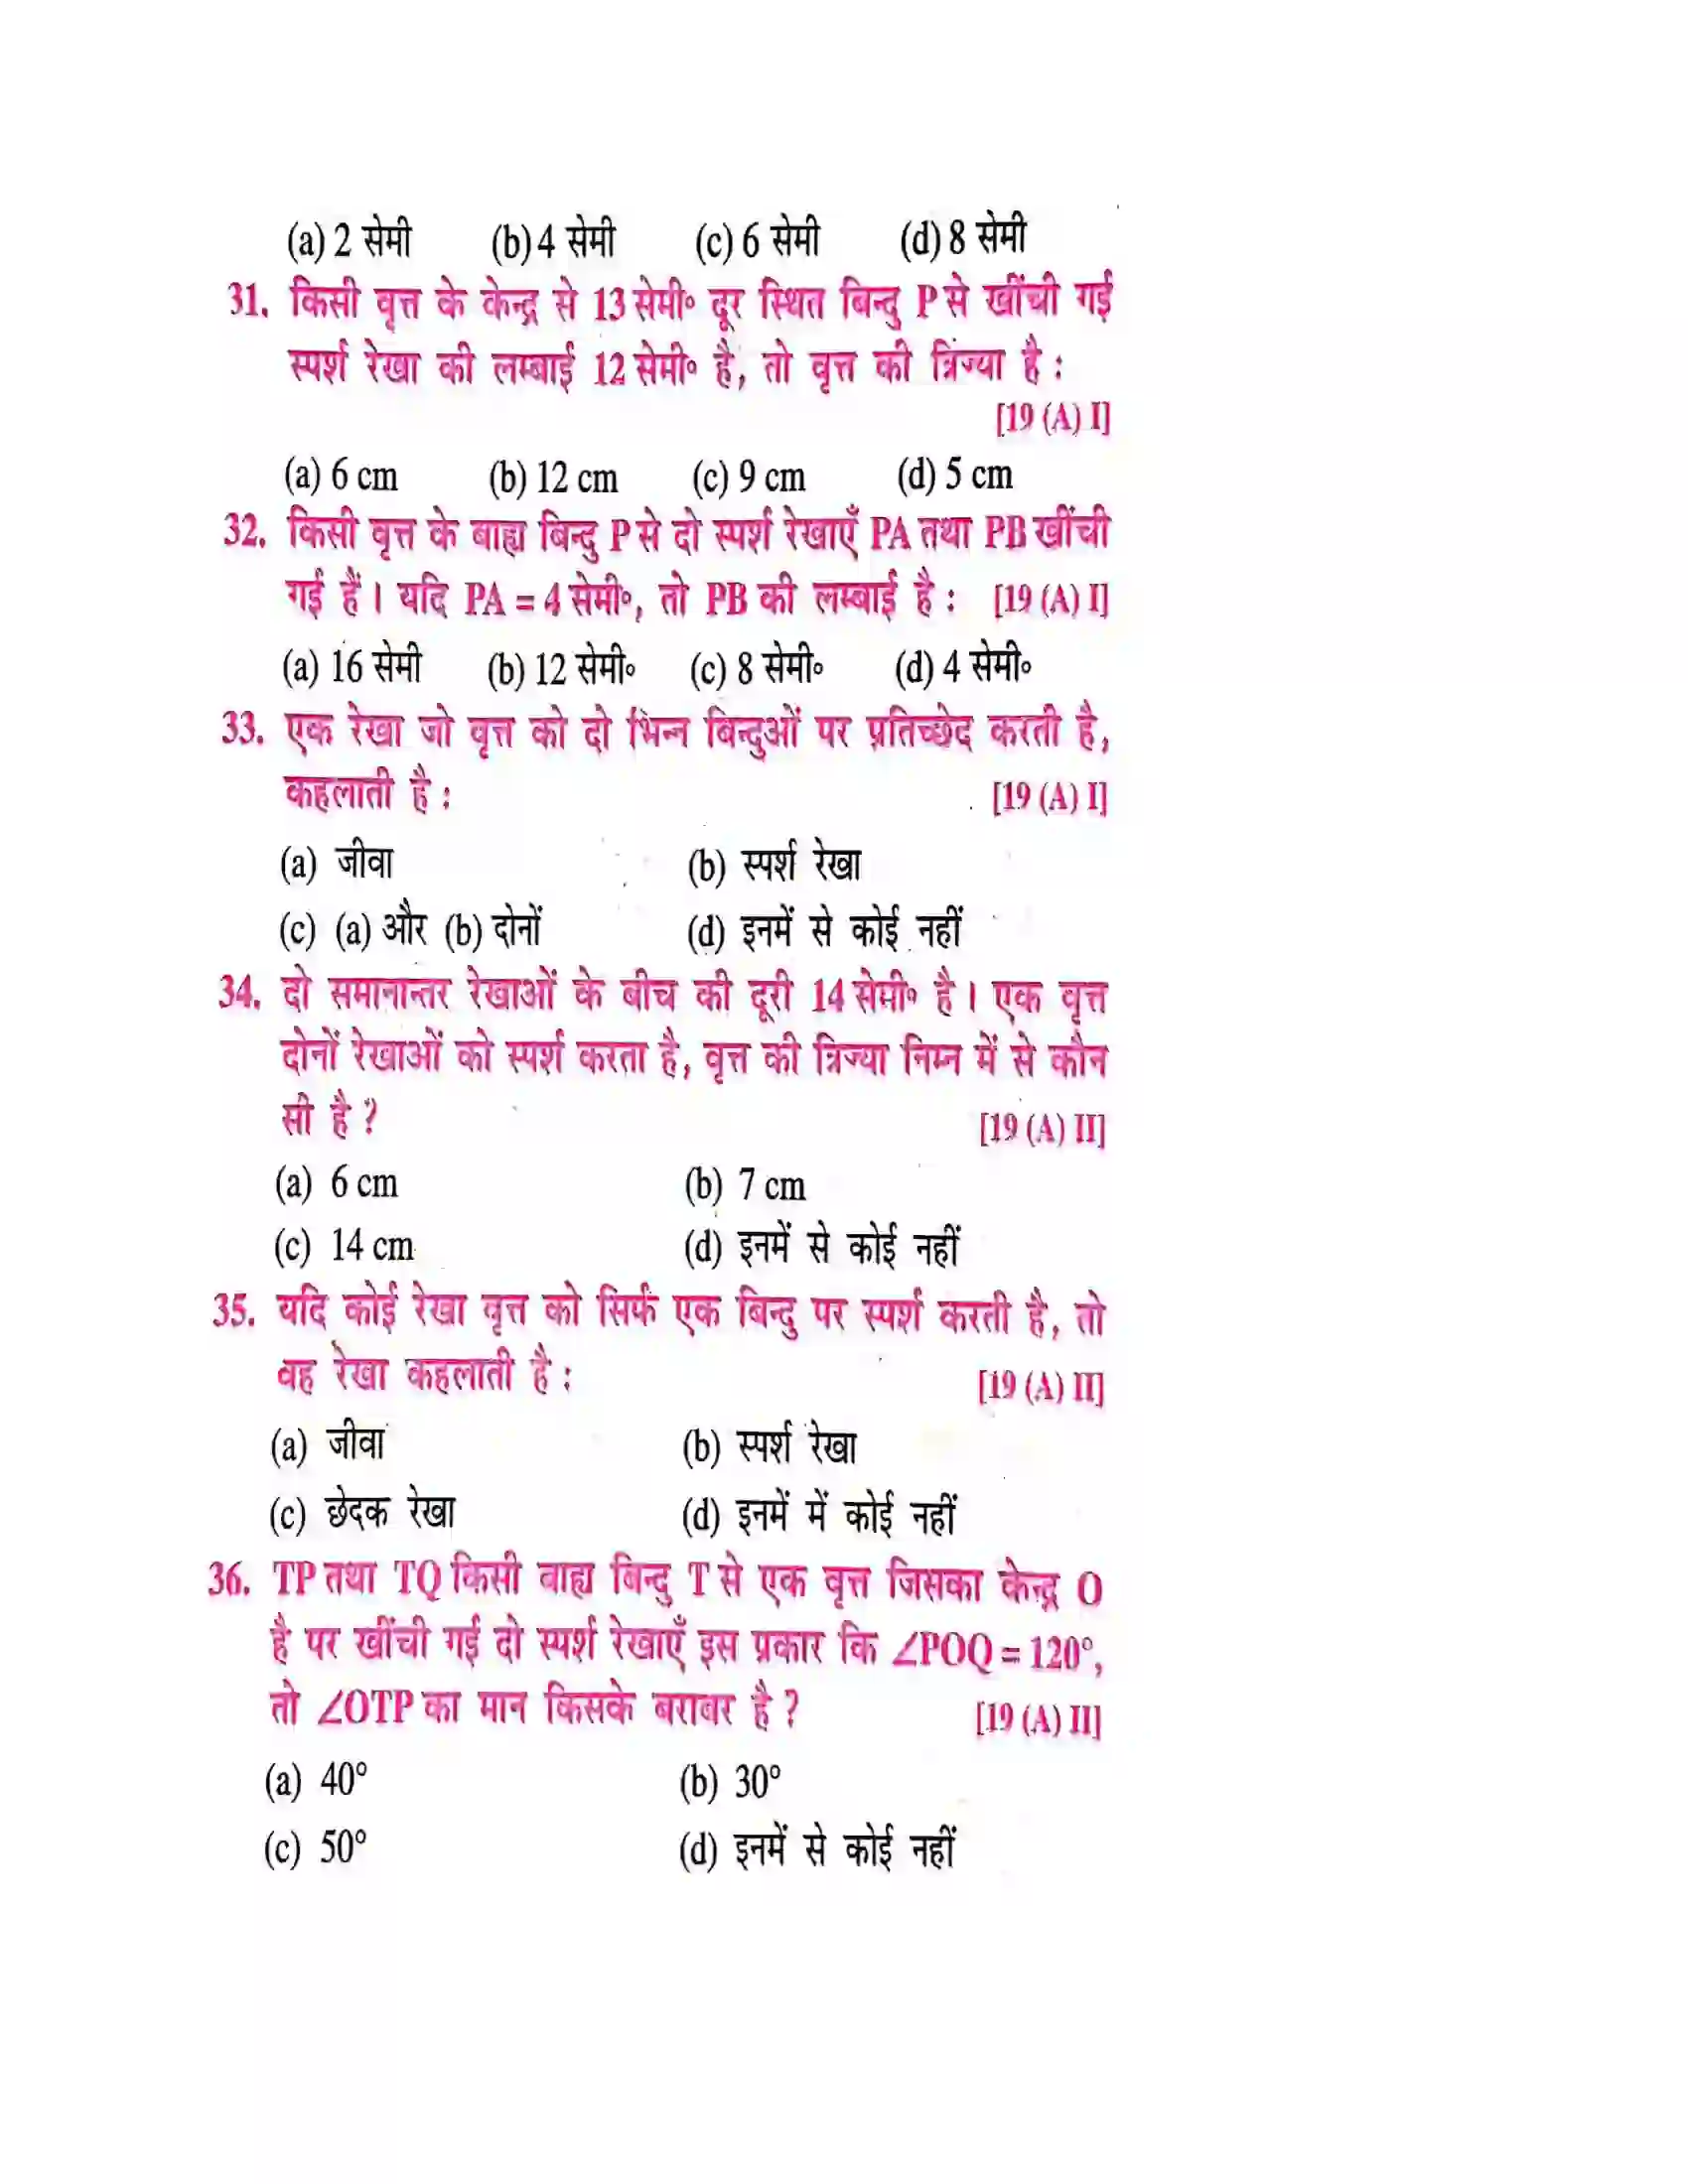 (a) 2 सेमी (b) 4 सेमी (c) 6 सेमी (d) 8 सेमी
31. किसी वृत्त के केन्द्र से 13 सेमी॰ दूर स्थित बिन्दु P से खींची गई
स्पर्श रेखा की लम्बाई 12 सेमी॰ है, तो वृत्त की त्रिज्या है :
[19 (A) I]
(a) 6 cm (b) 12 cm (c) 9 cm (d) 5 cm
32. किसी वृत्त के बाह्य बिन्दु P से दो स्पर्श रेखाएँ PA तथा PB खींची
गई हैं। यदि PA = 4 सेमी॰, तो PB की लम्बाई है : [19 (A) I]
(a) 16 सेमी (b) 12 सेमी॰ (c) 8 सेमी॰ (d) 4 सेमी॰
33. एक रेखा जो वृत्त को दो भिन्न बिन्दुओं पर प्रतिच्छेद करती है,
कहलाती है : [19 (A) I]
(a) जीवा (b) स्पर्श रेखा
(c) (a) और (b) दोनों (d) इनमें से कोई नहीं
34. दो समानान्तर रेखाओं के बीच की दूरी 14 सेमी॰ है। एक वृत्त
दोनों रेखाओं को स्पर्श करता है, वृत्त की त्रिज्या निम्न में से कौन
सी है ? [19 (A) II]
(a) 6 cm (b) 7 cm
(c) 14 cm (d) इनमें से कोई नहीं
35. यदि कोई रेखा वृत्त को सिर्फ एक बिन्दु पर स्पर्श करती है, तो
वह रेखा कहलाती है : [19 (A) II]
(a) जीवा (b) स्पर्श रेखा
(c) छेदक रेखा (d) इनमें में कोई नहीं
36. TP तथा TQ किसी बाह्य बिन्दु T से एक वृत्त जिसका केन्द्र O
है पर खींची गई दो स्पर्श रेखाएँ इस प्रकार कि ∠POQ = 120°,
तो ∠OTP का मान किसके बराबर है ? [19 (A) II]
(a) 40° (b) 30°
(c) 50° (d) इनमें से कोई नहीं